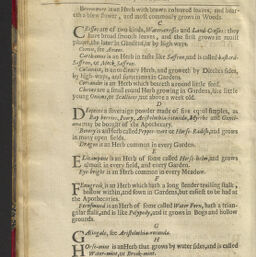 Brownwort is an Herb with brown coloured leaves, and bear-
eth a blew flower, and most commonly grows in Woods.
C
Cresses, are of two kinds, Water-cresses and Land-Cresses: they
have broad smooth leaves, and the first grows in moist
places, the later in Gardens, or by high-ways.
see
Carthamus is an Herb in taste like Saffron, and is called bastard-
Saffron, or Mock-Saffron.
is an ordinary Herb, and groweth by Ditches sides,
by high-ways, and sometimes in Gardens.
Coriander is an Herb which beareth around little seed.
are a small round Herb growing in Gardens, like little
young Onions, or Scallions not above a week old.
D
a sovereign powder made of five equal simples, as
Bay-berries, Ivory, Aristolochia-rotunda, Myrrhe and Genti-
ana may be bought of the Apothecary.
is an Herb called Pepper-wort or Horse-Radish, and grows
in most open fields.
Dragon is an Herb common in every Garden.
E
Elecampane is an Herb of some called Horse-helm, and grows
almost in every field, and every Garden.
Eye-bright is an Herb common in every Meadow.
F
Fenugreek is an Herb which hath a long slender trailing stalk,
hollow within, and sown in Gardens, but easiest to be had at
the Apothecaries.
is an Herb of some called Water Fern, hath a trian-
gular stalk, and is like Polypody, and it grows in Bogs and hollow
grounds.
G
Galingale, see Aristolochia-rotunda.
H
Horse-mint is an Herb that grows by water sides, and is called
Water-mint, or Brook-mint.